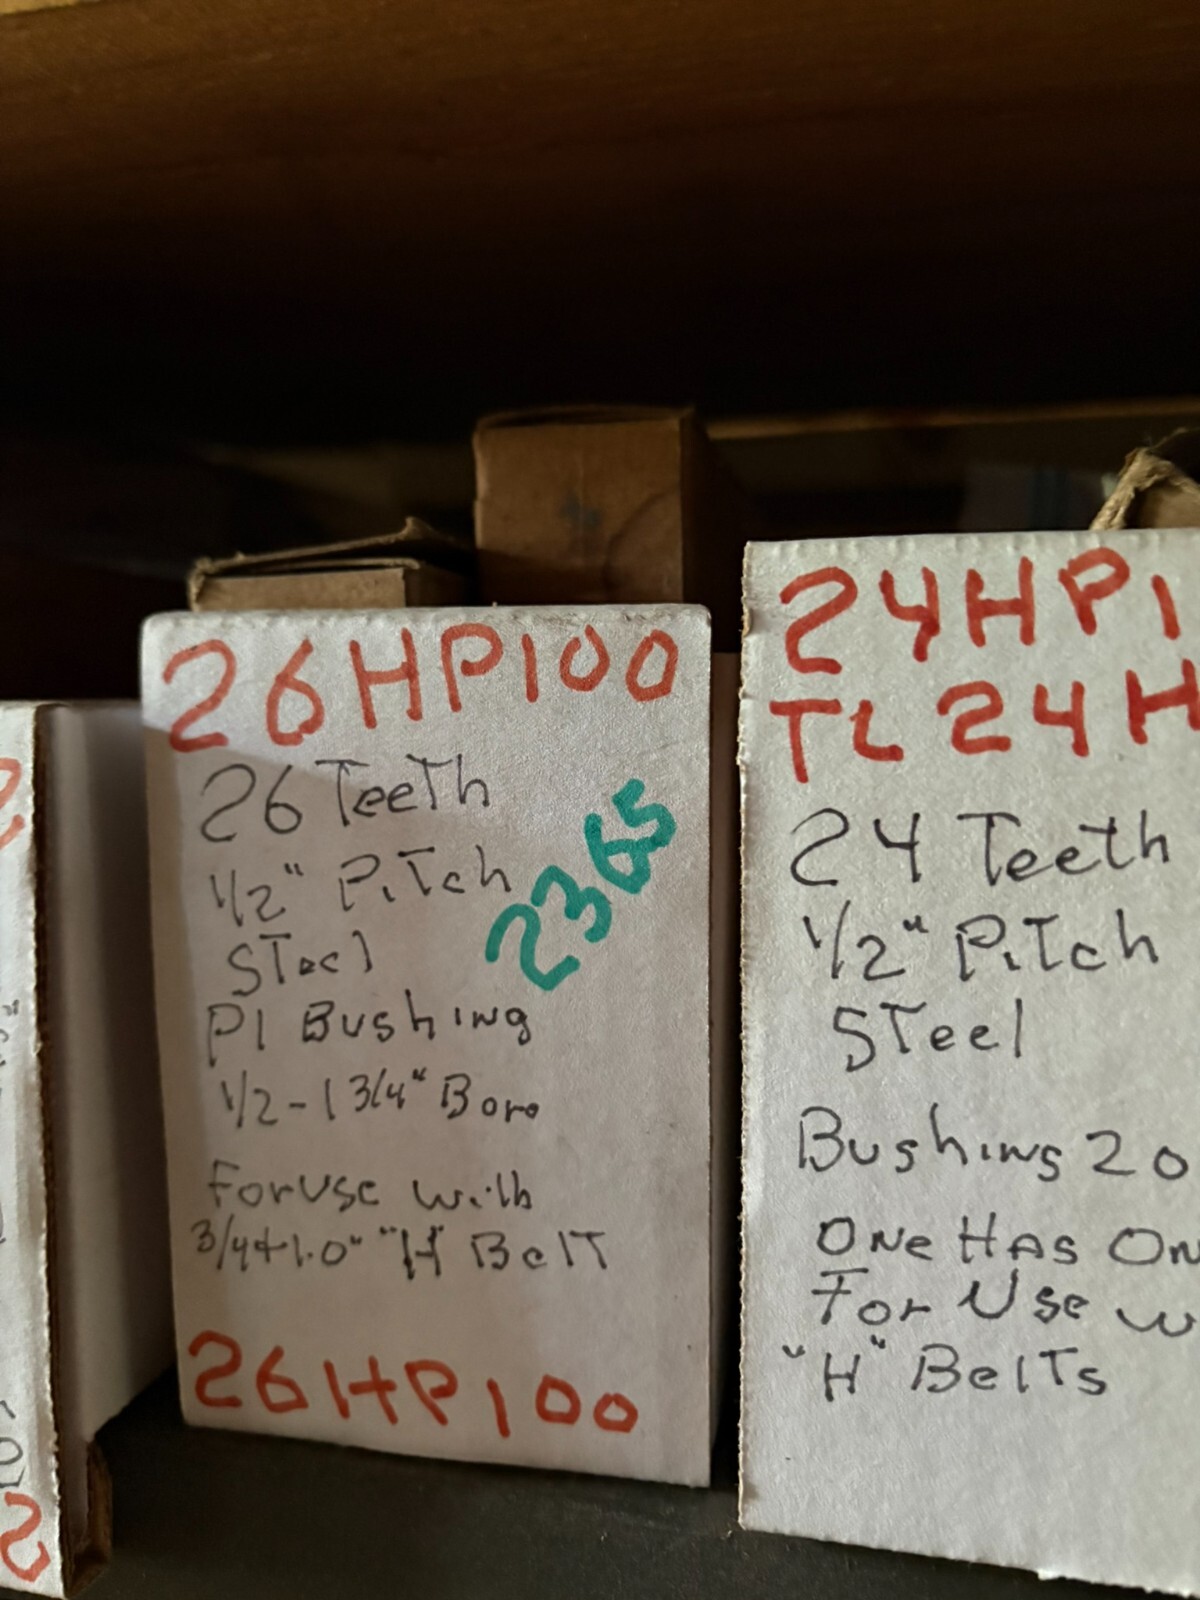 26HP100
26 Teeth
1/2" Pitch
2365
Steel
P1 Bushing
1/2 - 1 3/4" Bore
For use with
3/4 + 1.0" "H" Belt
26HP100
24HP1
TL24H
24 Teeth
1/2" Pitch
Steel
Bushing 20
One Has On
For Use w
"H" Belts